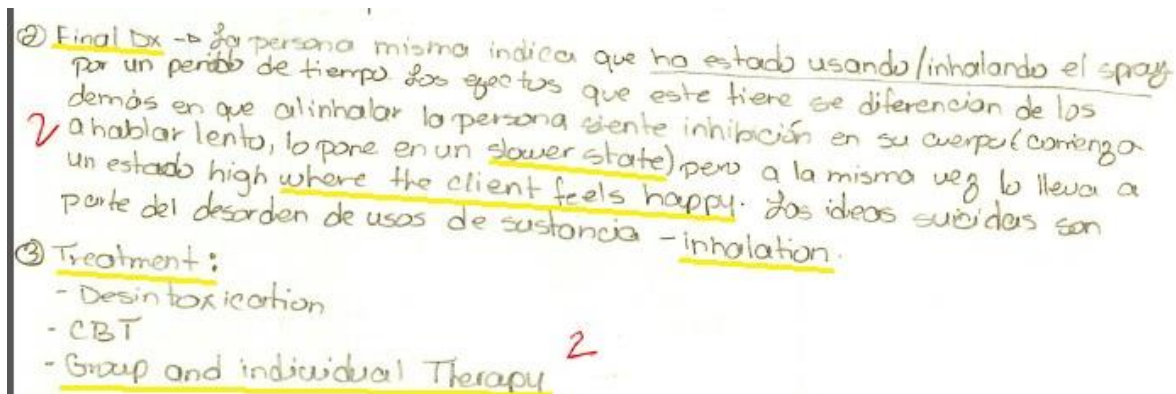 ② Final Dx → La persona misma indica que ha estado usando/inhalando el spray
por un periodo de tiempo. Los efectos que este tiene se diferencian de los
demás en que al inhalar la persona siente inhibición en su cuerpo (comienza
2 a hablar lento, lo pone en un slower state) pero a la misma vez lo lleva a
un estado high where the client feels happy. Los ideas suicidas son
parte del desorden de usos de sustancia - inhalation.
③ Treatment:
- Desintoxication
- CBT
- Group and individual Therapy 2